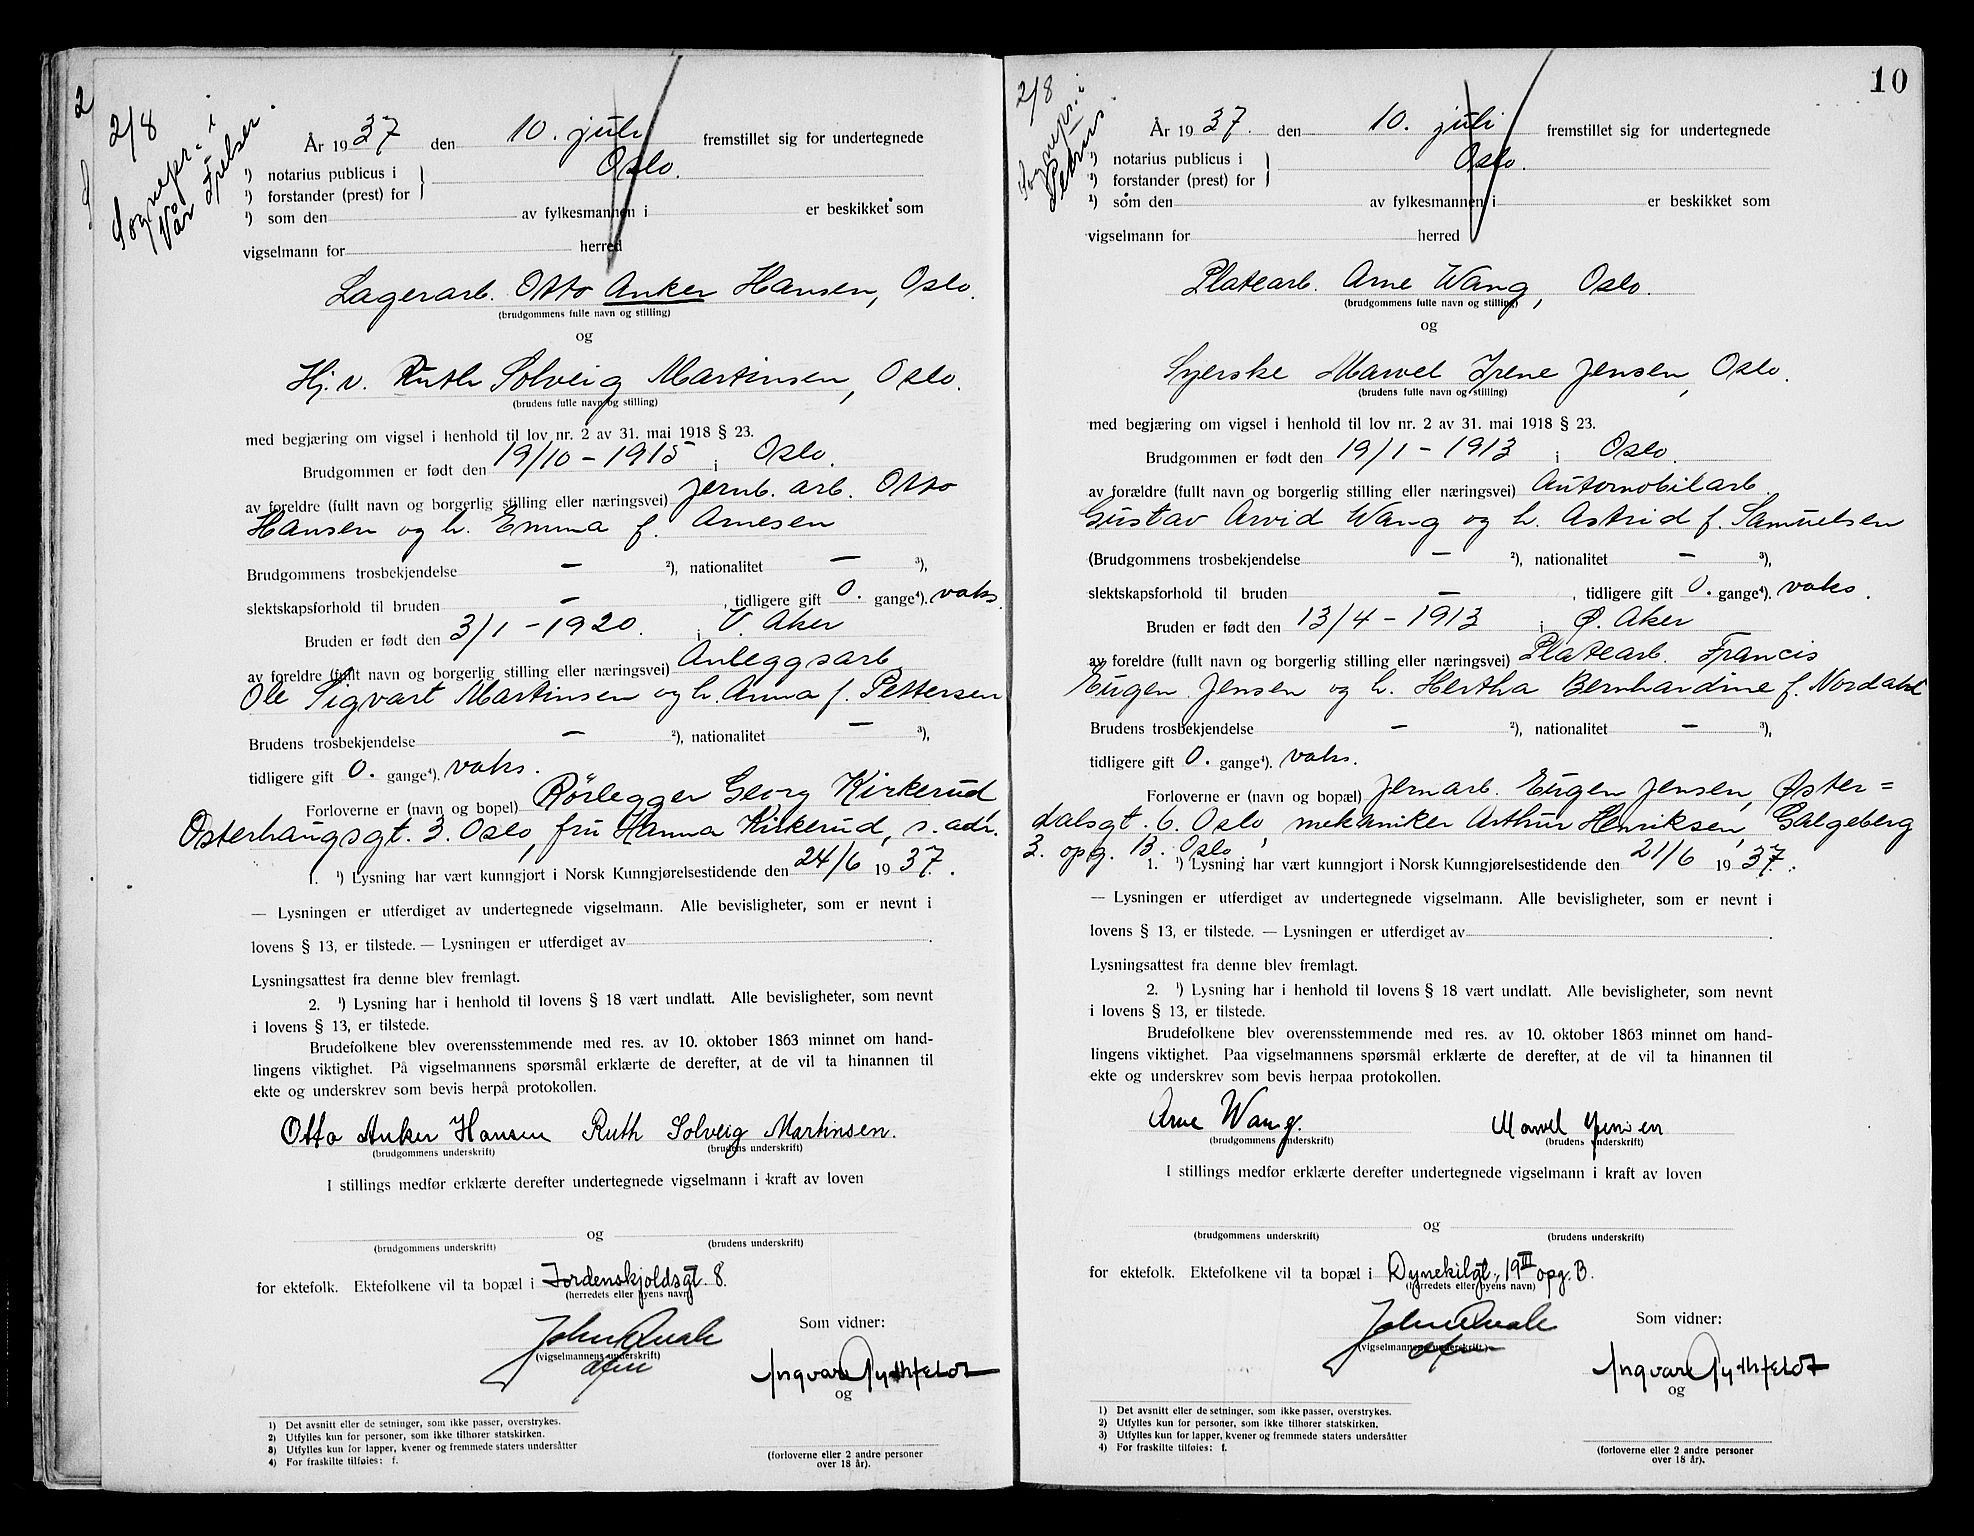 2
2/8
Sognepr. i
Vår Frelser.
År 1937 den 10. juli fremstillet sig for undertegnede
¹) notarius publicus i
Oslo.
¹) forstander (prest) for
¹) som den av fylkesmannen i er beskikket som
vigselmann for herred
Lagerarb. Otto Anker Hansen, Oslo.
(brudgommens fulle navn og stilling)
og
Hj.v. Ruth Solveig Martinsen, Oslo.
(brudens fulle navn og stilling)
med begjæring om vigsel i henhold til lov nr. 2 av 31. mai 1918 § 23.
Brudgommen er født den 19/10 - 1915 i Oslo.
av foreldre (fullt navn og borgerlig stilling eller næringsvei) Jernb. arb. Otto
Hansen og h. Emma f. Arnesen
Brudgommens trosbekjendelse — ²), nationalitet — ³),
slektskapsforhold til bruden — , tidligere gift 0. gange⁴). voks.
Bruden er født den 3/1 - 1920. i V. Aker
av foreldre (fullt navn og borgerlig stilling eller næringsvei) Anleggsarb.
Ole Sigvart Martinsen og h. Anna f. Pettersen
Brudens trosbekjendelse — ²), nationalitet — ³),
tidligere gift 0. gange⁴). voks.
Forloverne er (navn og bopel) Rörlegger Georg Kirkerud
Osterhaugsgt. 3. Oslo, fru Hanna Kirkerud, s. adr.
1. ¹) Lysning har vært kunngjort i Norsk Kunngjørelsestidende den 24/6 1937.
— Lysningen er utferdiget av undertegnede vigselmann. Alle bevisligheter, som er nevnt i
lovens § 13, er tilstede. — Lysningen er utferdiget av .
Lysningsattest fra denne blev fremlagt.
2. ¹) Lysning har i henhold til lovens § 18 vært undlatt. Alle bevisligheter, som nevnt
i lovens § 13, er tilstede.
Brudefolkene blev overensstemmende med res. av 10. oktober 1863 minnet om hand-
lingens viktighet. På vigselmannens spørsmål erklærte de derefter, at de vil ta hinannen til
ekte og underskrev som bevis herpå protokollen.
Otto Anker Hansen Ruth Solveig Martinsen.
(brudgommens underskrift) (brudens underskrift)
I stillings medfør erklærte derefter undertegnede vigselmann i kraft av loven
og
(brudgommens underskrift) (brudens underskrift)
for ektefolk. Ektefolkene vil ta bopæl i Tordenskjoldsgt. 8.
(herredets eller byens navn)
Som vidner:
John Quale
(vigselmannens underskrift)
Ingvar
og
1) Det avsnitt eller de setninger, som ikke passer, overstrykes.
2) Utfylles kun for personer, som ikke tilhører statskirken.
3) Utfylles kun for lapper, kvener og fremmede staters undersåtter
4) For fraskilte tilføies: f.
(forloverne eller 2 andre personer
over 18 år).
10
2/8
Sognepr. i
Petrus.
År 1937. den 10. juli fremstillet sig for undertegnede
¹) notarius publicus i
Oslo.
¹) forstander (prest) for
¹) som den av fylkesmannen i er beskikket som
vigselmann for herred
Platearb. Arne Wang, Oslo.
(brudgommens fulle navn og stilling)
og
Syerske Marvel Irene Jensen, Oslo.
(brudens fulle navn og stilling)
med begjæring om vigsel i henhold til lov nr. 2 av 31. mai 1918 § 23.
Brudgommen er født den 19/1 - 1913 i Oslo.
av forældre (fullt navn og borgerlig stilling eller næringsvei) Automobilarb.
Gustav Arvid Wang og h. Astrid f. Samuelsen
(Brudgommens trosbekjendelse — ²), nationalitet — ³),
slektskapsforhold til bruden — , tidligere gift 0. gange⁴). voks.
Bruden er født den 13/4 - 1913 i Ø. Aker
av foreldre (fullt navn og borgerlig stilling eller næringsvei) Platearb. Francis
Eugen Jensen og h. Hertha Bernhardine f. Nordahl
Brudens trosbekjendelse — ²), nationalitet — ³),
tidligere gift 0. gange⁴). voks.
Forloverne er (navn og bopæl) Jernarb. Eugen Jensen, Øster=
dalsgt. 6. Oslo, mekaniker Arthur Henriksen, Galgeberg
3. opg. B. Oslo.
1. ¹) Lysning har vært kunngjort i Norsk Kunngjørelsestidende den 21/6 1937.
— Lysningen er utferdiget av undertegnede vigselmann. Alle bevisligheter, som er nevnt i
lovens § 13, er tilstede. — Lysningen er utferdiget av .
Lysningsattest fra denne blev fremlagt.
2. ¹) Lysning har i henhold til lovens § 18 vært undlatt. Alle bevisligheter, som nevnt
i lovens § 13, er tilstede.
Brudefolkene blev overensstemmende med res. av 10. oktober 1863 minnet om hand-
lingens viktighet. Paa vigselmannens spørsmål erklærte de derefter, at de vil ta hinannen til
ekte og underskrev som bevis herpaa protokollen.
Arne Wang. Marvel Jensen
(brudgommens underskrift) (brudens underskrift)
I stillings medfør erklærte derefter undertegnede vigselmann i kraft av loven
og
(brudgommens underskrift) (brudens underskrift)
for ektefolk. Ektefolkene vil ta bopæl i Dynekilgt. 19 III opg. B.
(herredets eller byens navn)
Som vidner:
John Quale
(vigselmannens underskrift)
Ingvar
og
1) Det avsnitt eller de setninger, som ikke passer, overstrykes.
2) Utfylles kun for personer, som ikke tilhører statskirken.
3) Utfylles kun for lapper, kvener og fremmede staters undersåtter
4) For fraskilte tilføies: f.
(forloverne eller 2 andre personer
over 18 år).